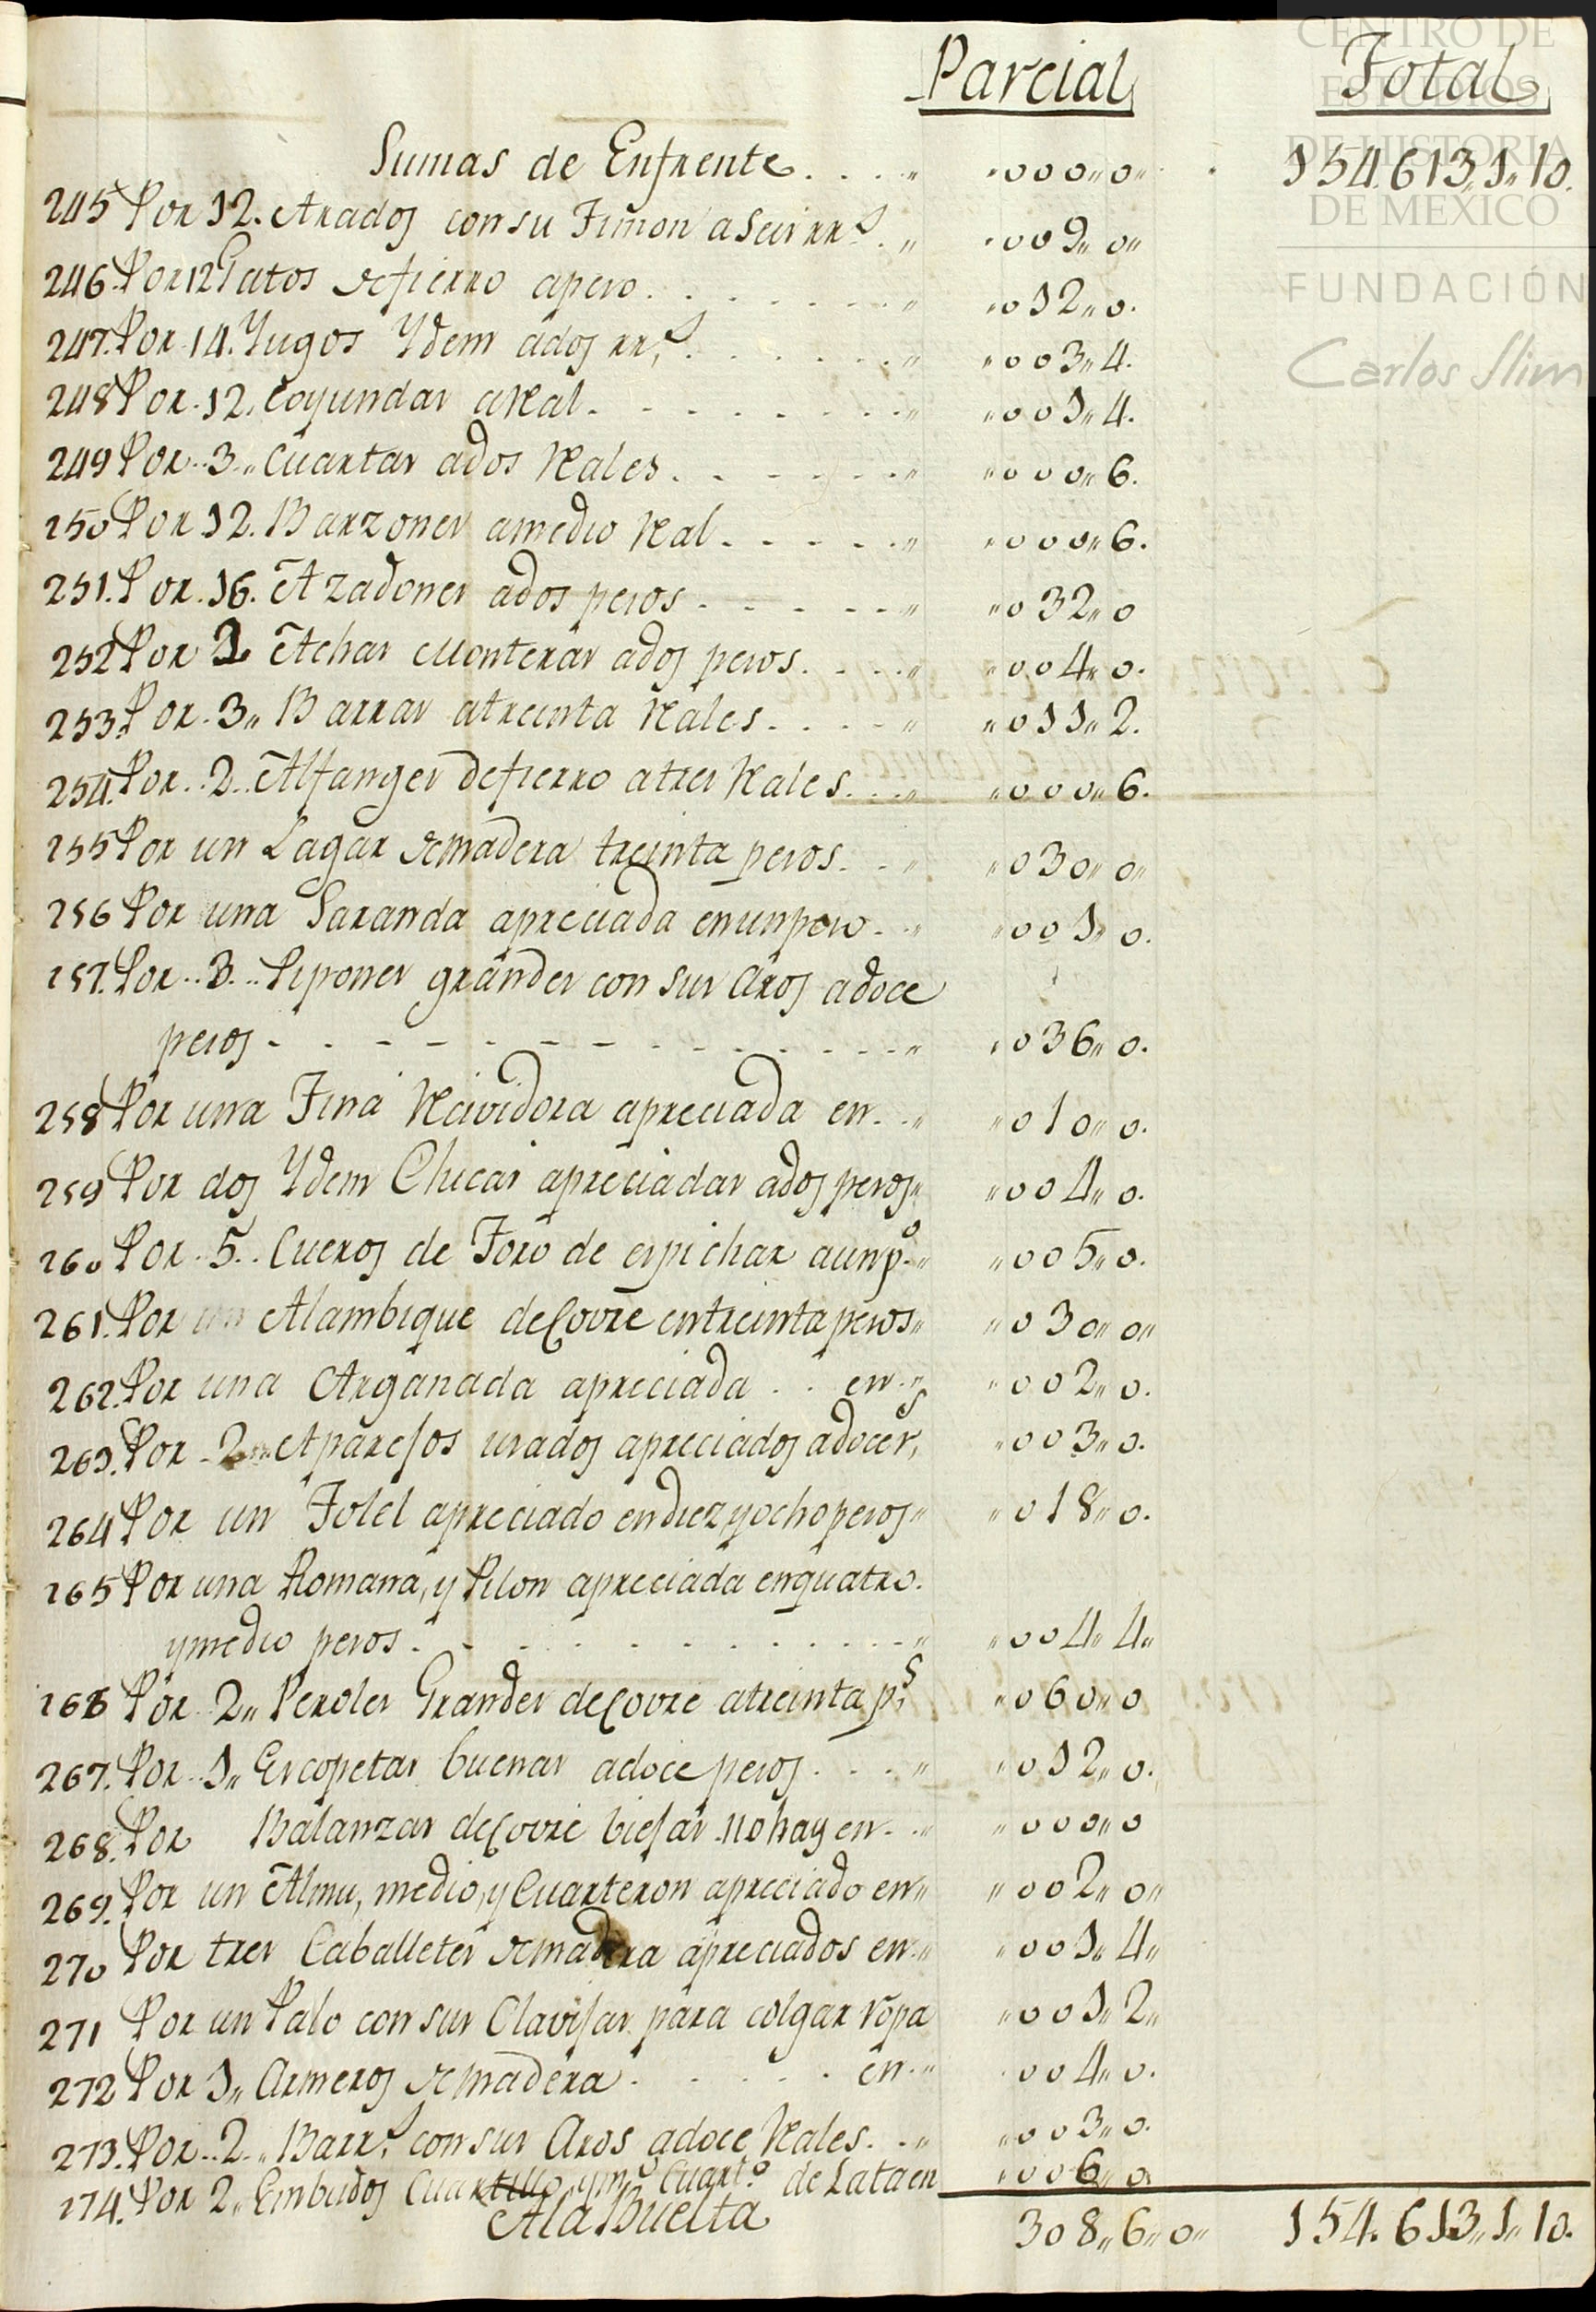 Parcial Total
Sumas de Enfrente. . . . „ „000„0„ 154.613„1„10.
245 Por 12. Arados con su Timon a Seis rr.s . „ „009„0„
246. Por 12 Gatos de fierro a peso . . . . . . . „ „012„0.
247. Por 14. Yugos Ydem á dos rr.s . . . . . . „ „003„4.
248 Por. 12. Coyundas a Real . . . . . . . . „ „001„4.
249 Por.. 3„ Cuartas a dos Reales . . . . . . „ „000„6.
250 Por 12. Barzones a medio Real . . . . . „ „000„6.
251. Por. 16. Azadones a dos pesos . . . . . „ „032„0
252 Por 2 Achas Monteras a dos pesos . . . . „ „004„0.
253. Por. 3„ Barras a treinta Reales . . . . „ „011„2.
254. Por.. 2.. Alfanges de fierro a tres Reales. . . „ „000„6.
255 Por un Lagar de madera treinta pesos. . „ „030„0„
256 Por una Saranda apreciada en un peso . . „ „001„0.
257. Por.. 3... Pipones grandes con sus Aros a doce
pesos . . . . . . . . . . . . . . „ „036„0.
258 Por una Tina Recividora apreciada en . . „ „010„0.
259 Por dos Ydem Chicas apreciadas a dos pesos„ „004„0.
260 Por. 5.. Cueros de Toro de espichar a un p.o „ „005„0.
261. Por un Alambique de Covre en treinta pesos„ „030„0„
262. Por una Arganada apreciada . . en . „ „002„0.
263. Por . 2„ Aparejos usados apreciados a doce r.s „003„0.
264 Por un Fotel apreciado en diez y ocho pesos„ „018„0.
265 Por una Romana, y Pilon apreciada en quatro.
y medio pesos . . . . . . . . . . . „ „004„4„
266 Por 2„ Peroles Grandes de Covre a treinta p.s „060„0
267. Por.. 1„ Escopetas buenas a doce pesos . . . „ „012„0.
268. Por Balanzas de Covre biejas no hay en . . „ „000„0
269. Por un Almu, medio, y Cuarteron apreciado en„ „002„0„
270 Por tres Caballetes de madera apreciados en„ „001„4„
271 Por un Palo con sus Clavijas para colgar ropa „001„2„
272 Por 1„ Armeros de madera . . . . . en . „ 004„0.
273. Por.. 2.. Barr.s con sus Aros a doce Reales. . „ „003„0.
274. Por 2„ Embudos Cuartillo y m.o Cuart.o de Lata en „006„0.
A la Buelta 308„6„0„ 154.613„1„10.
CENTRO DE
ESTUDIOS
DE HISTORIA
DE MEXICO
FUNDACIÓN
Carlos Slim